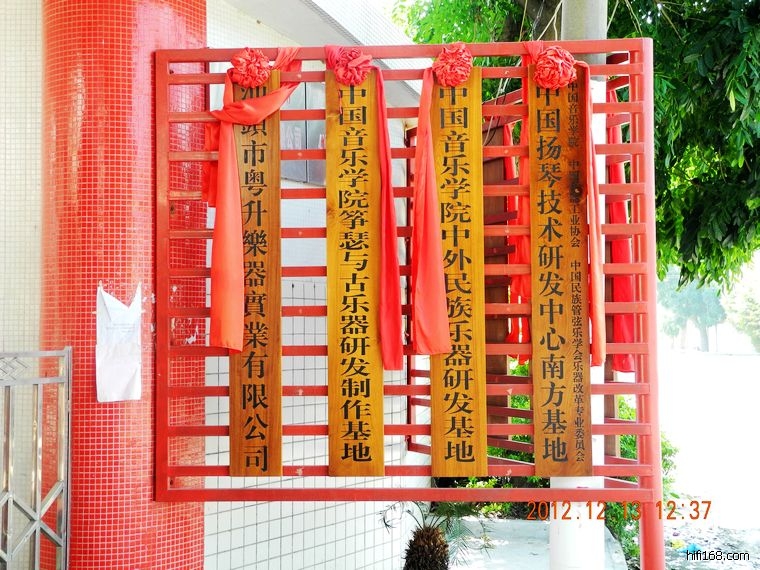 汕頭市粤升樂器實業有限公司
中国音乐学院筝瑟与古乐器研发制作基地
中国音乐学院中外民族乐器研发基地
中国扬琴技术研发中心南方基地
中国音乐学院 中国 工业协会 中国民族管弦乐学会乐器改革专业委员会
2012.12.13 12:37
hifi168.com